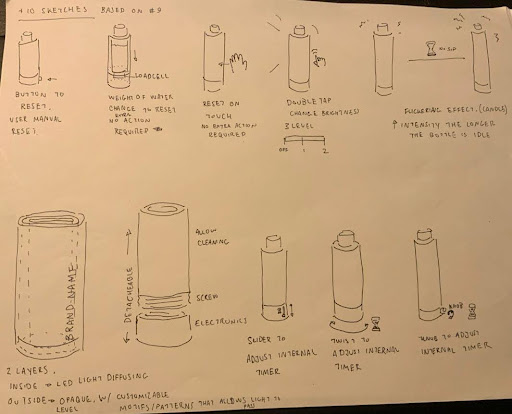 + 10 SKETCHES BASED ON #9
BUTTON TO
RESET.
USER MANUAL
RESET.
LOADCELL
WEIGHT OF WATER
CHANGE TO RESET
EXTRA
NO ACTION
REQUIRED
RESET ON
TOUCH
NO EXTRA ACTION
REQUIRED
DOUBLE TAP
CHANGE BRIGHTNESS
3 LEVEL
OFF 1 2
FLICKERING EFFECT. (CANDLE)
↑ INTENSITY THE LONGER
THE BOTTLE IS IDLE
BRAND-NAME
2 LAYERS.
INSIDE → LED LIGHT DIFFUSING
OUTSIDE → OPAQUE, W/ CUSTOMIZABLE
LEVEL MOTIFS/PATTERNS THAT ALLOWS LIGHT TO
PASS
DETACHEABLE
ALLOW
CLEANING
SCREW
ELECTRONICS
SLIDER TO
ADJUST INTERNAL
TIMER
TWIST TO
ADJUST INTERNAL
TIMER
KNOB
KNOB TO ADJUST
INTERNAL TIMER